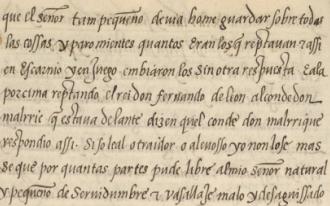 que el señor tam pequeno deuia home guardar sobre todas
las cossas y pararo mientes quantos eran los q̃ reptauan & assi
en escarnio y en juego embiáron los sin otra respuesta E ala
por cima reptando el rei don fernando de lion al conde don
malrric q̃ estaua delante dizen quel conde don malrrique
respondio assi. Si so leal o traidor o aleuosso yo non lo se mas
se que por quantas partes pude libre al mio señor natural
y pequeño de seruidumbre & vasallaje malo y desaguissado